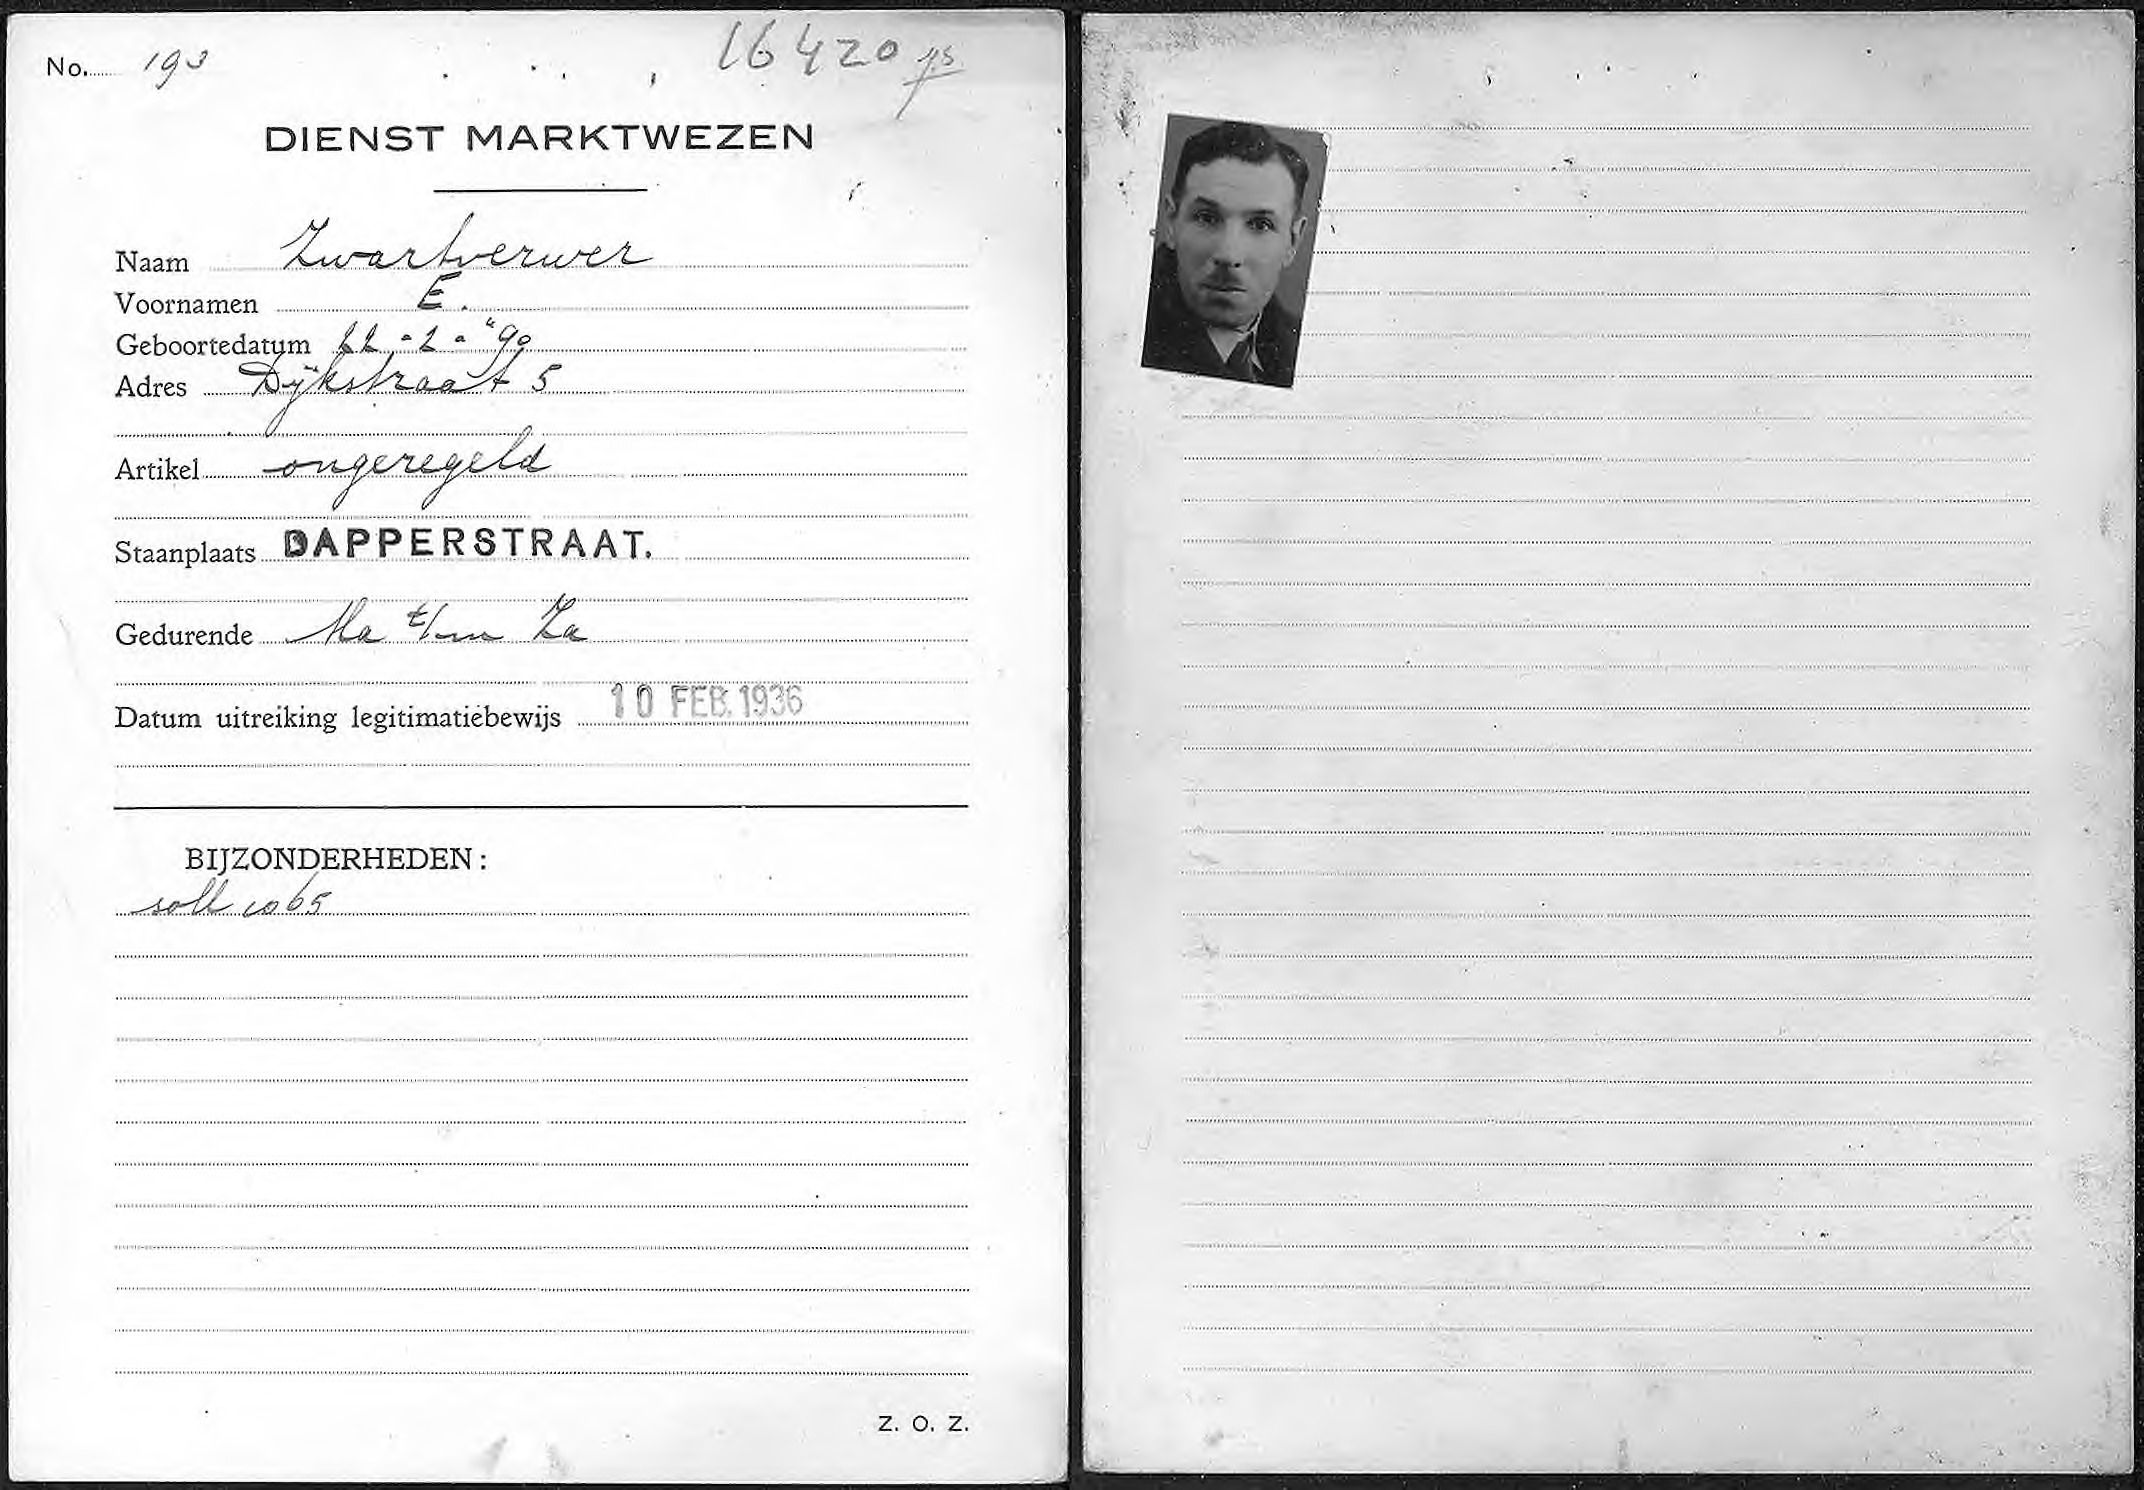 No. 193
16420
DIENST MARKTWEZEN
Naam Zwartverwer
Voornamen E.
Geboortedatum 22-2-"90
Adres Dijkstraat 5
Artikel ongeregeld
Staanplaats DAPPERSTRAAT.
Gedurende Ma t/m Za
Datum uitreiking legitimatiebewijs 10 FEB. 1936
BIJZONDERHEDEN:
soll 1065
Z. O. Z.